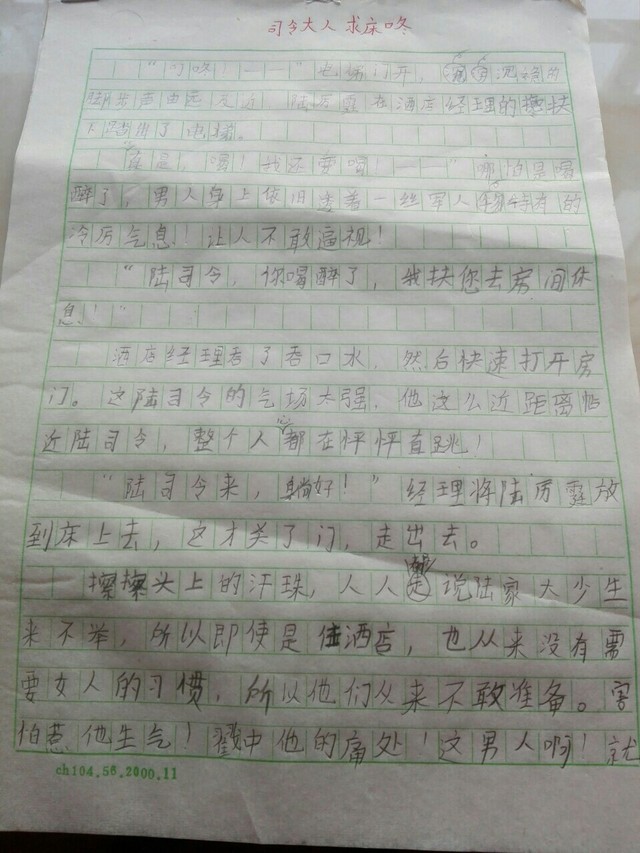 司令大人求床咚
"叮咚!——"电梯门开,
脚步声由远及近,陆厉霆在酒店经理的搀扶
下踏出了电梯。
是,喝!我还要喝!——"哪怕是喝
醉了,男人身上依旧透着一丝军人特有的
冷厉气息!让人不敢逼视!
"陆司令,你喝醉了,我扶您去房间休
息!"
酒店经理吞了吞口水,然后快速打开房
门。这陆司令的气场太强,他这么近距离帖
近陆司令,整个人都在怦怦直跳!
"陆司令来,躺好!"经理将陆厉霆放
到床上去,这才关了门,走出去。
擦擦头上的汗珠,人人都说陆家大少生
来不举,所以即使是住酒店,也从来没有需
要女人的习惯,所以他们从来不敢准备。害
怕惹他生气!戳中他的痛处!这男人啊!就
ch104.56.2000.11